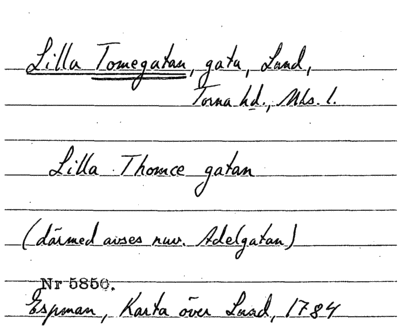 Lilla Tomegatan, gata, Lund,
Torna hd., Mhs. l.
Lilla Thomce gatan
(därmed avses nuv. Adelgatan)
Nr 5850.
Espman, Karta över Lund, 1784